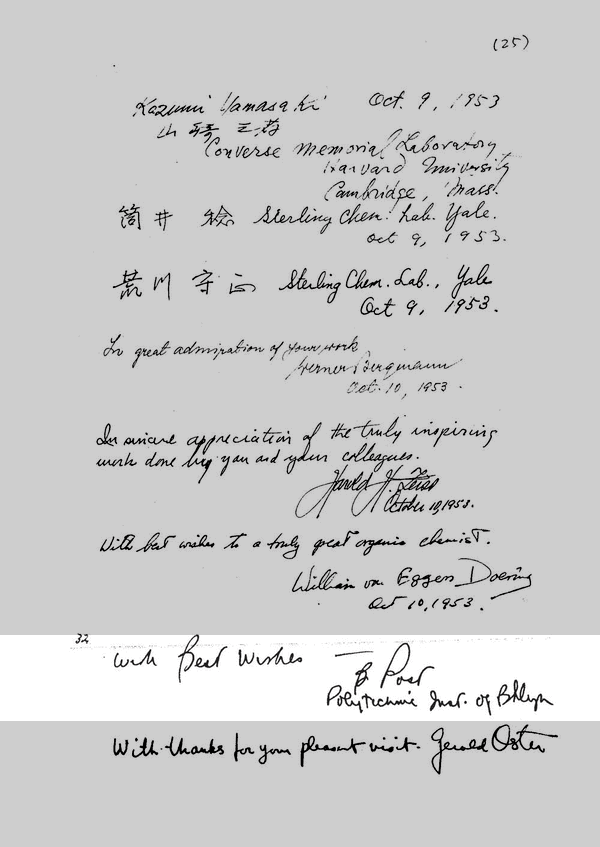 (25)
Kazumi Yamasaki Oct. 9, 1953
山崎
Converse Memorial Laboratory,
Harvard University
Cambridge, Mass.
筒井 稔 Sterling Chem. Lab. Yale.
oct 9, 1953.
荒川 守正 Sterling Chem. Lab., Yale
Oct 9, 1953.
In great admiration of your work
Werner Bergmann
Oct. 10, 1953.
In sincere appreciation of the truly inspiring
work done by you and your colleagues.
Harold H. Zeiss
October 10, 1953.
With best wishes to a truly great organic chemist.
William von Eggers Doering
Oct 10, 1953.
32
with Best Wishes — B Post
Polytechnic Inst. of Bklyn
With thanks for your pleasant visit. Gerald Oster